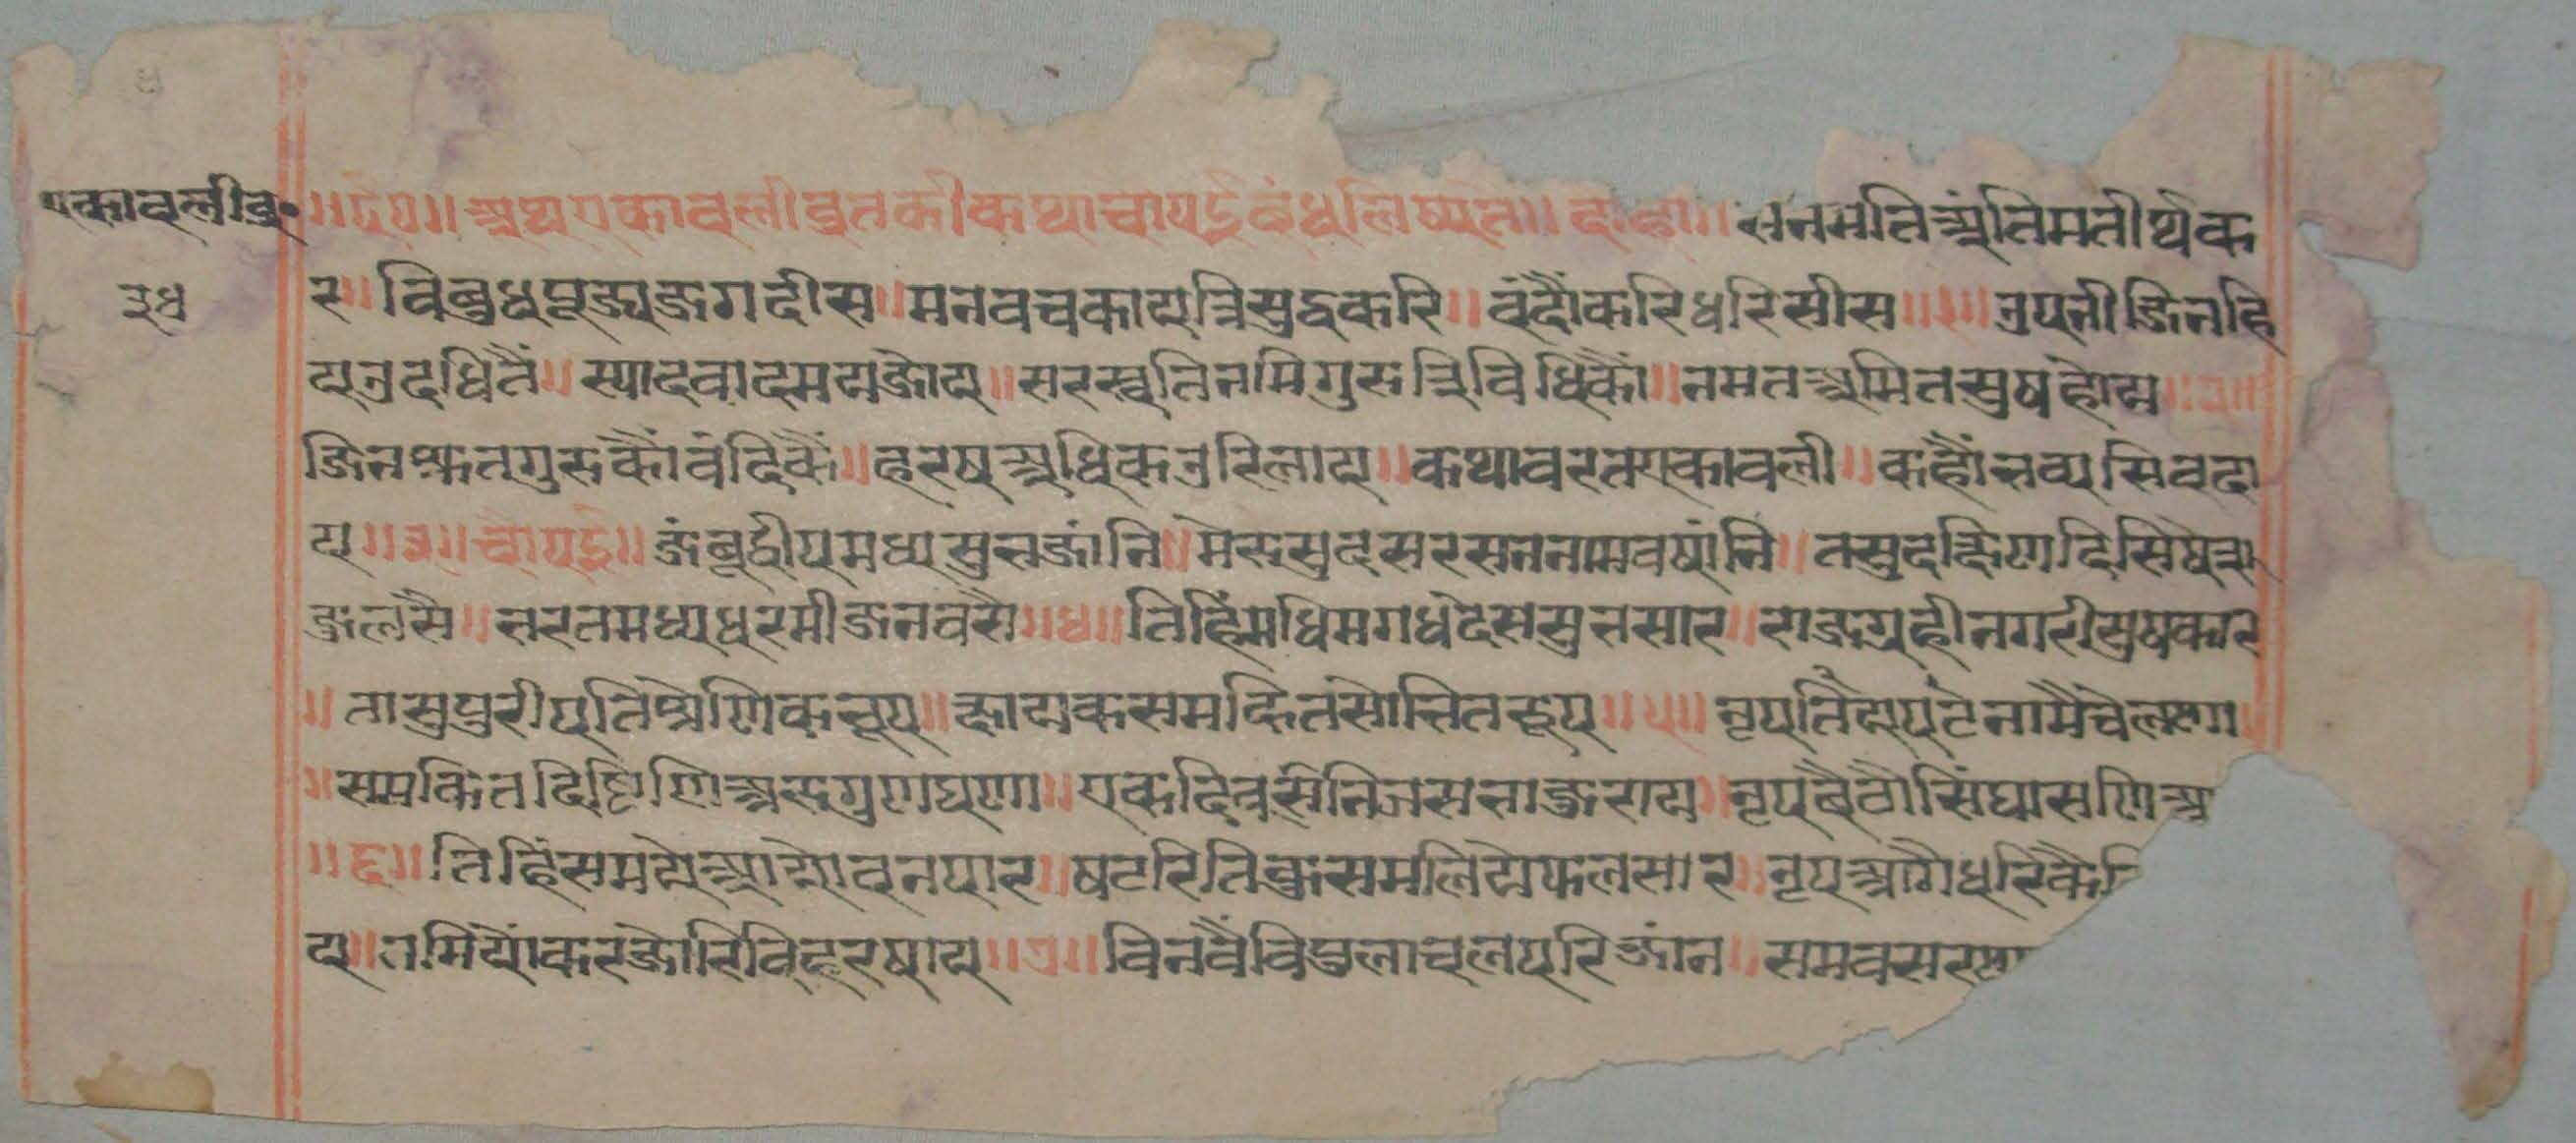 एकावलीव्र॰
३४
॥६०॥ अथ एकावली व्रत की कथा चौपई बंध लिष्यते॥ दोहा॥ सनमति अंतिम तीर्थक
र॥ विबुध पूज्य जगदीस॥ मन वच काय त्रिसुद्ध करि॥ वंदौं करि धरि सीस॥१॥ उपनी जिन हि
य उदधि तैं॥ स्याद वाद मय जोय॥ सरस्वति नमि गुरु त्रिविधि कौं॥ नमत अमित सुष होय॥२॥
जिन श्रुत गुरु कौं वंदि कैं॥ हरष अधिक उरि लाय॥ कथा वरत एकावली॥ कहौं भव्य सिवदा
य॥३॥ चौपई॥ जंबूद्वीप मध्य सुभ जांनि॥ मेरु सुदरसन नाम वषांनि॥ तसु दक्षिण दिसि षेत्र
जु लसै॥ भरत मध्य धरमी जन वसै॥४॥ तिहिं मधि मगध देस सुभ सार॥ राजग्रही नगरी सुषकार
॥ तासु पुरी पति श्रेणिक भूप॥ क्षायक समकित सोभित रूप॥५॥ नृपति पट नामै चेलणा
॥ समकित दिष्टि णि अरु गुण घणा॥ एक दिवसि निज सभा जु राय॥ नृप बैठौ सिंघासणि आ
॥६॥ तिहिं समये आयो वनपार॥ षट रिति कुसम लिये फल सार॥ नृप आगै धरि कै
य॥ नमियो कर जोरि वि हरषाय॥७॥ विनवै विपुलाचल परि जांन॥ समवसरण